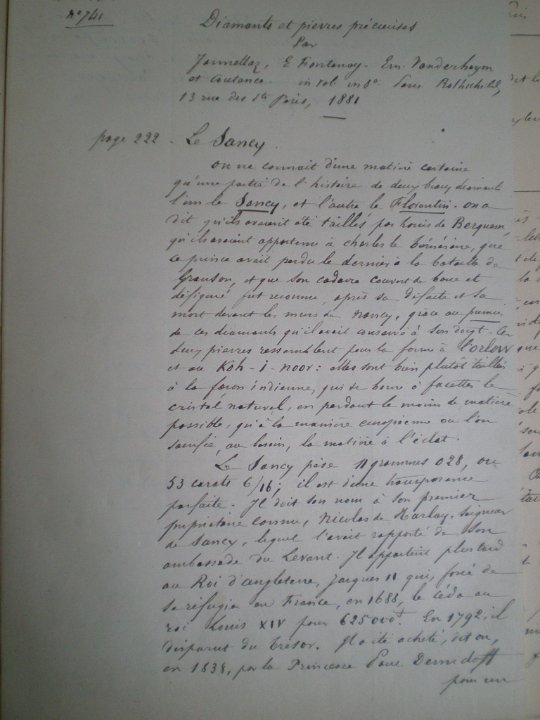 N° 741
Diamants et pierres précieuses
Par
Jannettaz, E Fontenay. Em. Vanderheym
et Coutance in vol in 8° Paris Rothschild,
13 rue des Sts Pères, 1881
page 222 - Le Sancy.
On ne connait d'une matière certaine
qu'une partie de l'histoire de deux beaux diamants
l'un le Sancy, et l'autre le Florentin. on a
dit qu'ils avaient été taillés par Louis de Berquem,
qu'ils avaient appartenu à Charles le Téméraire, que
ce prince avait perdu le dernier à la bataille de
Granson, et que son cadavre couvert de boue et
défiguré, fut reconnu, après sa défaite et sa
mort devant les murs de Nancy, grâce au premier
de ces diamants qu'il avait conservé à son doigt. Ces
deux pierres ressemblent pour la forme à l'orlow
et au Koh-i-noor: elles sont bien plutôt taillées
à la façon indienne, qui se borne à facetter le
cristal naturel, en perdant le moins de matière
possible, qu'à la manière européenne où l'on
sacrifie, au besoin, la matière à l'éclat.
Le Sancy pèse 11 grammes 028, ou
53 carats 6/16; il est d'une transparence
parfaite. Il doit son nom à son premier
propriétaire connu, Nicolas de Harlay, seigneur
de Sancy, lequel l'avait rapporté de son
ambassade du Levant. Il appartint plus tard
au Roi d'angleterre, Jacques II qui, forcé de
se réfugier en France, en 1688, le céda au
roi Louis XIV pour 625000f. En 1792, il
disparut du Trésor. Il a été acheté, dit on,
en 1838, par la Princesse Paul Demidoff
pour un